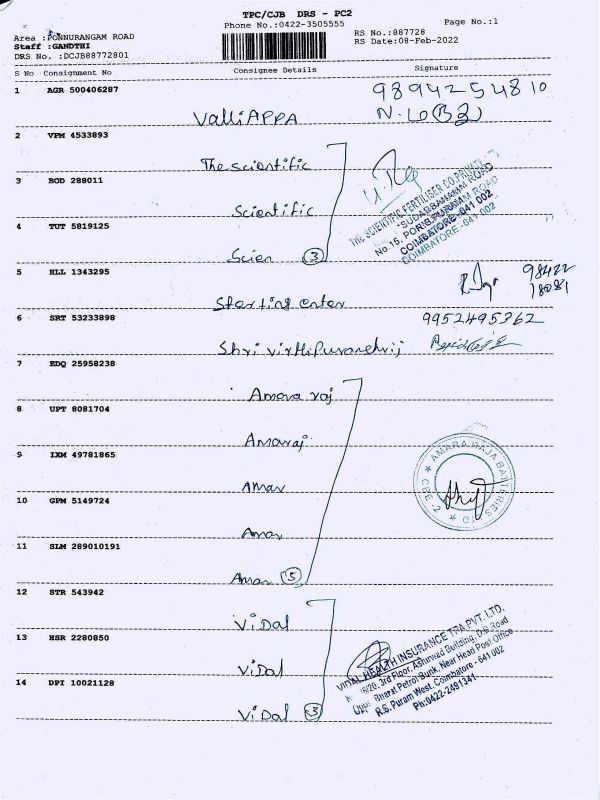 TPC/CJB DRS - PC2
Phone No.:0422-3505555
Page No.:1
Area :PONNURANGAM ROAD
Staff :GANDTHI
DRS No. :DCJB88772801
RS No.:887728
RS Date:08-Feb-2022
S No Consignment No Consignee Details Signature
1 AGR 500406287
9894254810
ValliAPPA
2 VPM 4533893
The scientific
3 BOD 288011
Scientific
4 TUT 5819125
Scien 3
THE SCIENTIFIC FERTILISER CO.PRIVATE
"SUDARBAMANIAM ROAD
No.15, PONNURANGAM ROAD
COIMBATORE-641 002
COIMBATORE-641 002
5 HLL 1343295
98422
18081
6 SRT 53233898
9952495362
Shri
7 EDQ 25958238
Amara raj
8 UPT 8081704
Amaraj
9 IXM 49781865
Amar
10 GPM 5149724
Amar
11 SLM 289010191
Amar 5
AMARA RAJA BATTERIES LTD
CBE-2
12 STR 543942
ViDal
13 HSR 2280850
ViDal
14 DPI 10021128
ViDal 3
VIDAL HEALTH INSURANCE TPA PVT. LTD.
3rd Floor, Ashirwad Building, D.B.Road
Opp. Bharat Petrol Bunk, Near Head Post Office
R.S. Puram West, Coimbatore - 641 002
Ph:0422-2491341